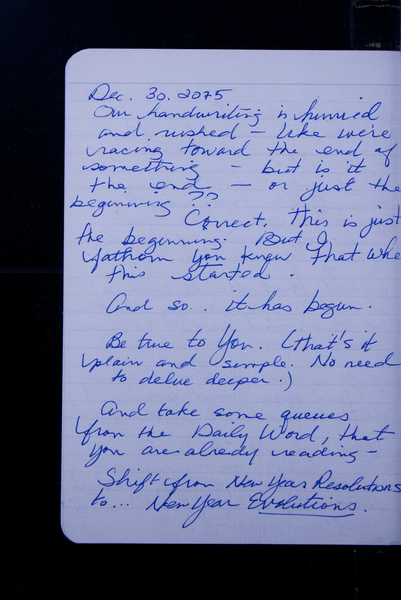 Dec. 30. 2075
Our handwriting is hurried
and rushed - like we're
racing toward the end of
something - but is it
the end - or just the
beginning??
Correct. This is just
the beginning. But I
fathom you knew that whe
this started.
And so.. it has begun.
Be true to You. (that's it
plain and simple. No need
to delve deeper.)
And take some queues
from the Daily Word, that
you are already reading -
Shift from New Year Resolutions
to... New Year Evolutions.